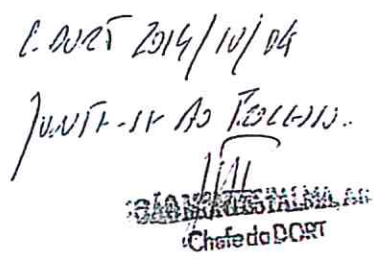 C. DORT 2014/10/04
JUNTE-SE AO PROCESSO.
Chefe do DORT